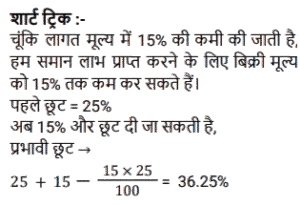 शार्ट ट्रिक :-
चूंकि लागत मूल्य में 15% की कमी की जाती है,
हम समान लाभ प्राप्त करने के लिए बिक्री मूल्य
को 15% तक कम कर सकते हैं।
पहले छूट = 25%
अब 15% और छूट दी जा सकती है,
प्रभावी छूट →
25 + 15 − \frac{15 × 25}{100} = 36.25%